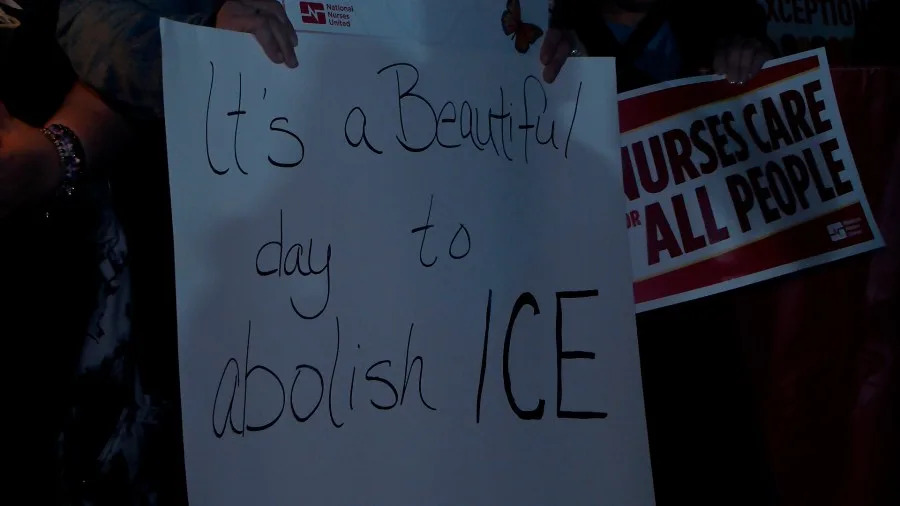 National
Nurses
United
EXCEPTION
It's a Beautiful
day to
abolish ICE
NURSES CARE
FOR ALL PEOPLE